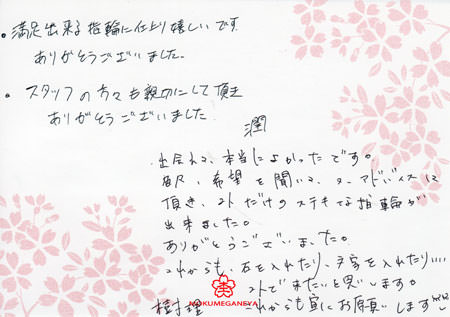 ・満足出来る指輪に仕上り嬉しいです
ありがとうございました。
・スタッフの方々も親切にして頂き
ありがとうございました
潤
出会えて、本当によかったです。
希望を聞いて、アドバイスに
頂き、だけのステキな指輪が
出来ました。
ありがとうございました。
これからも、石を入れたり、文字を入れたり…
来たいと思います。
これからも宜しくお願いします
MOKUMEGANEYA